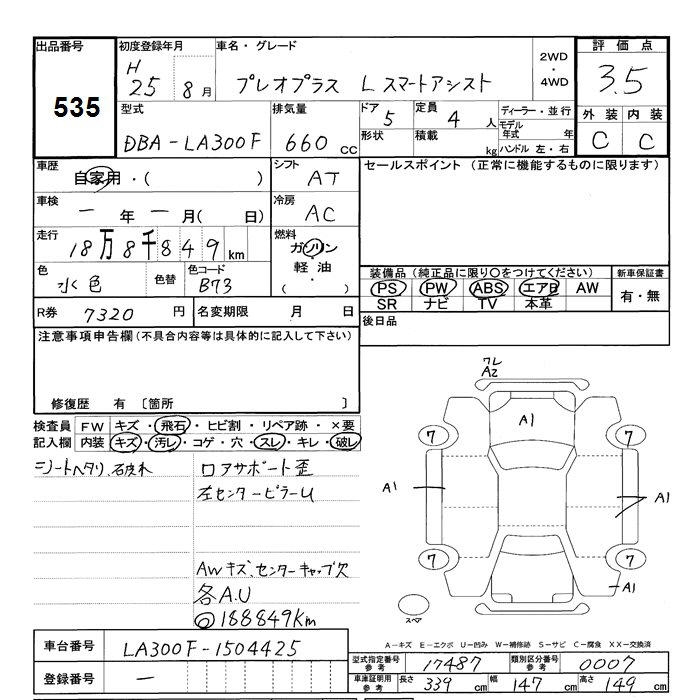 出品番号
535
初度登録年月
H 25 8月
車名・グレード
プレオプラス L スマートアシスト
2WD
・
4WD
評価点
3.5
外装 内装
C C
型式
DBA-LA300F
排気量
660 cc
ドア 5
定員 4 人
形状
積載 kg
ディーラー・並行
モデル年式 年
ハンドル 左・右
車歴
自家用・( )
シフト
AT
セールスポイント (正常に機能するものに限ります)
車検
ー年ー月( 日)
冷房
AC
走行
18万8千849km
燃料
ガソリン
軽油
( )
色
水色
色替
色コード
B73
装備品(純正品に限り○をつけてください)
PS PW ABS エアB AW
SR ナビ TV 本革
新車保証書
有・無
R券 7320 円
名変期限 月 日
後日品
注意事項申告欄(不具合内容等は具体的に記入して下さい)
修復歴 有 〔箇所 〕
検査員記入欄
FW キズ・飛石・ヒビ割・リペア跡・×要
内装 キズ・汚レ・コゲ・穴・スレ・キレ・破レ
シートヘタリ、破れ
ロアサポート歪
左センターピラーU
AWキズ、センターキャップ欠
各A.U
◎188849Km
ワレ
A2
A1
7
7
A1
A1
7
7
A1
スペア
A-キズ E-エクボ U-凹み W-補修跡 S-サビ C-腐食 XX-交換済
車台番号
LA300F-1504425
登録番号
ー
型式指定番号参考 17487
類別区分番号参考 0007
車庫証明用参考
長さ 339 cm
幅 147 cm
高さ 149 cm